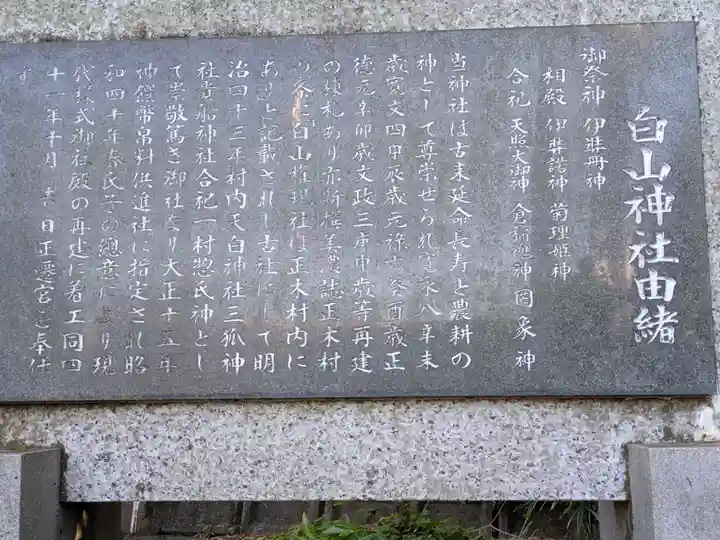 白山神社由緒
御祭神 伊弉冊神
相殿 伊弉諾神 菊理姫神
合祀 天照大御神 倉稲魂神 罔象神
当神社は古来延命長寿と農耕の
神として尊崇せられ寛永八辛未
歳寛文四甲辰歳元禄六癸酉歳正
徳元辛卯歳文政三庚申歳等再建
の棟札あり亦新撰美濃誌正木村
の条に白山権現社は正木村内に
ありと記載されし古社にして明
治四十三年村内天白神社三狐神
社貴船神社合祀一村惣氏神とし
て崇敬篤き御社なり大正十五年
神饌幣帛料供進社に指定され昭
和四十年春氏子の總意により現
代様式御社殿の再建に着工同四
十一年十月 吉日正遷宮を奉仕
す